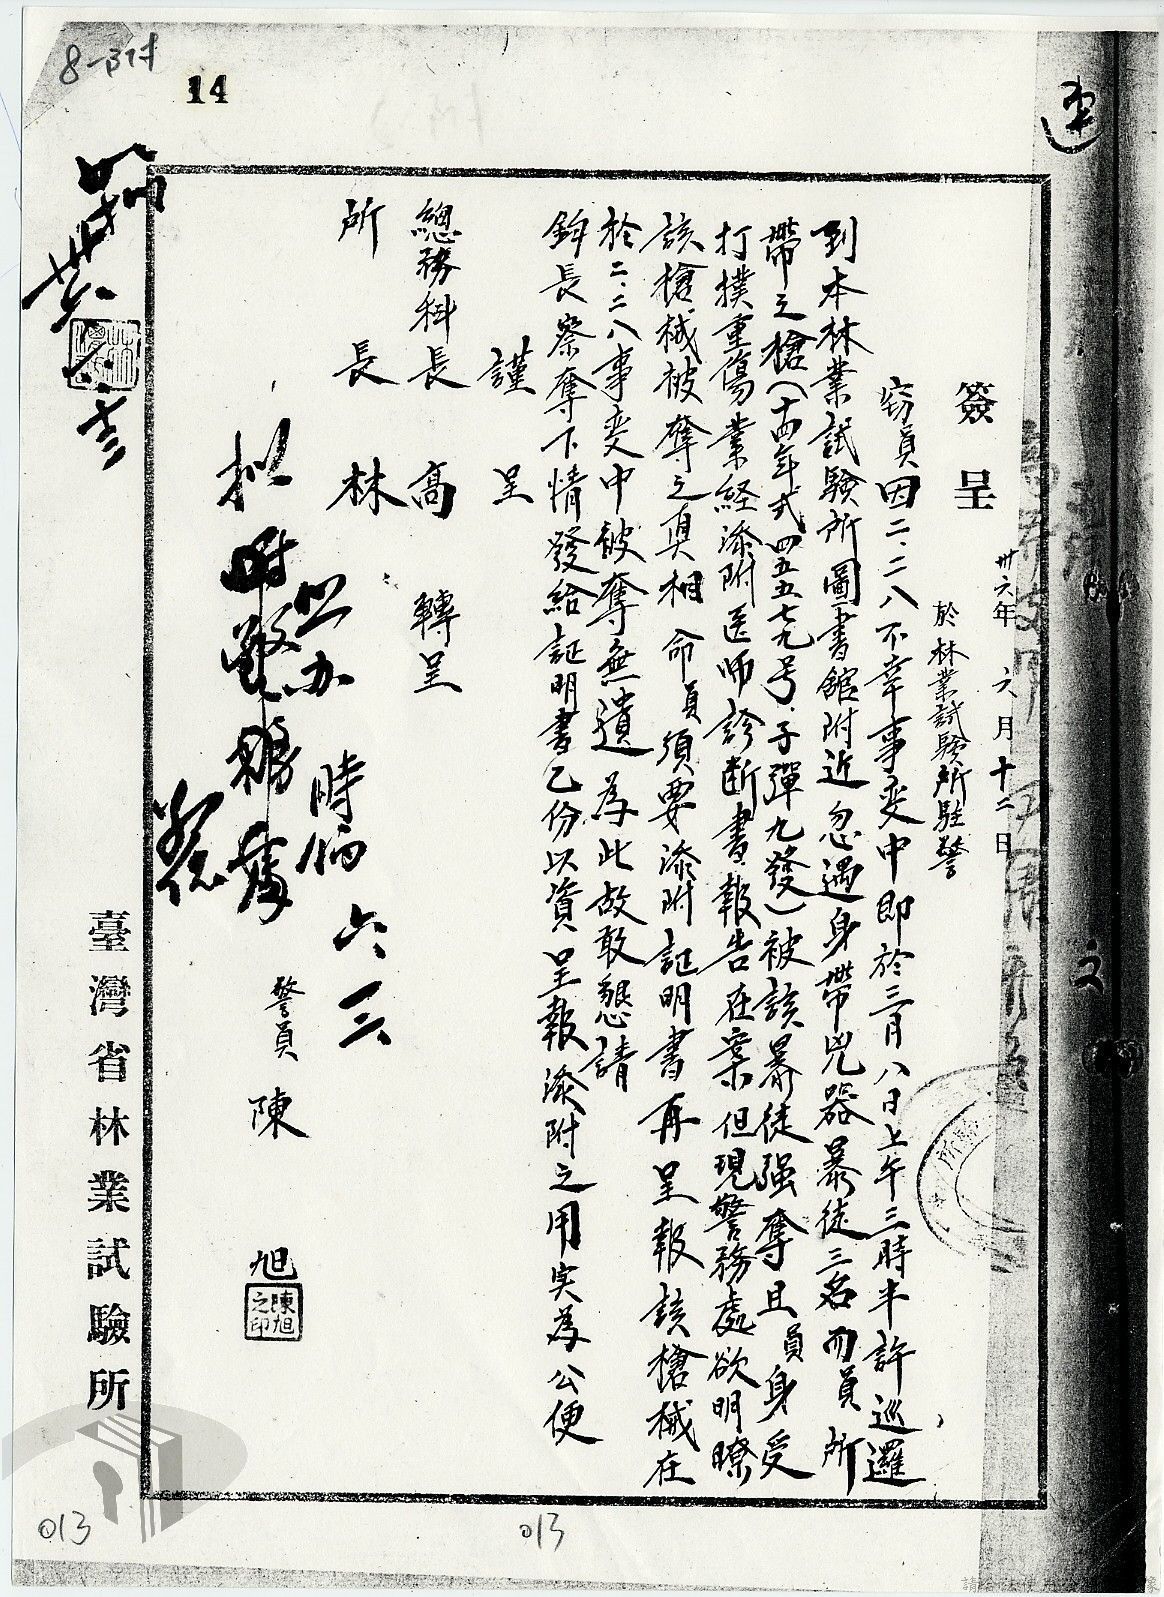 14
速
簽呈
卅六年 六月十二日
於林業試驗所駐警
窃員因二、二八不幸事変中即於三月八日上午三時半許巡邏
到本林業試驗所圖書舘附近忽遇身帶兇器暴徒三名而員所
帶之槍(十四年式四五五七九号.子彈九發)被該暴徒强奪且員身受
打撲重傷業経添附医师診断書報告在案但現警務處欲明瞭
該槍械被奪之真相 命員須要添附証明書再呈報該槍械在
於二、二八事変中被奪無遺 為此故敢懇請
鈞長察奪下情發給証明書乙份以資呈報添附之用実為公便
謹呈
總務科長 高 轉呈
所長 林
警員 陳旭
陳旭之印
臺灣省林業試驗所
013
013